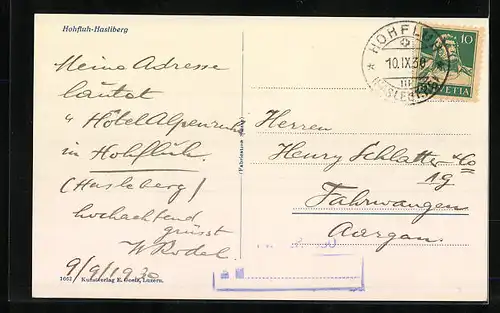 Hohfluh-Hasliberg
Meine Adresse
lautet
"Hôtel Alpenruhe
in Hohfluh.
(Hasleberg)
hochachtend
grüsst
W Rodel.
9/9/1930
1662 / Kunstverlag E. Goetz, Luzern.
HOHFLUH
10.IX.30
10
HELVETIA
Herren
Henry Schlatter & Co
Fahrwangen
Aargau.